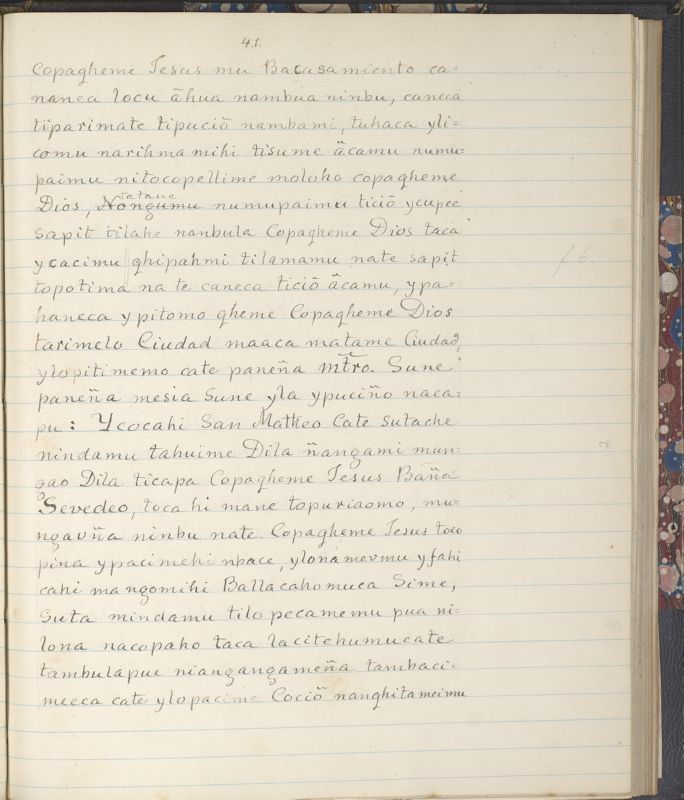 41.
Copagheme Jesus mu Bacasamiento ca=
naneca locu ãhua nambua ninbu, caneca
tiparimate tipuciõ nambami, tuhaca yli=
comu narihma mihi tisume ãcamu numu=
paimu nitocopellime moloho copagheme
tatane
Dios, Nongumu numupaimu ticiõ ycupee
sapit tilahe nanbula Copagheme Dios taca
ycacimu ghipahmi tilamamu nate sapit
topotima na te caneca ticiõ ãcamu, ypa=
haneca y pitomo gheme Copagheme Dios
tarimelo Ciudad maaca matame Ciudad,
ylopitimemo cate paneña mtro. Sune
paneña mesia Sune yla ypuciño naca=
pu: Ycocahi San Mattheo Cate Sutache
nindamu tahuime Dila ñangami mun=
gao Dila ticapa Copagheme Jesus Baña
Sevedeo, toca hi mane topuriaomo, mu=
ngavña ninbu nate. Copagheme Jesus toco
pina ypacimehi npace, ylona mevmu yfahi
cahi mangomihi Ballacahomuca Sime,
Suta mindamu tilo pecamemu pua ni=
lona nacopaho taca lacitchumucate
tambulapue niangangameña tambaci=
meeca cate ylopacime Cociõ nanghitameimu